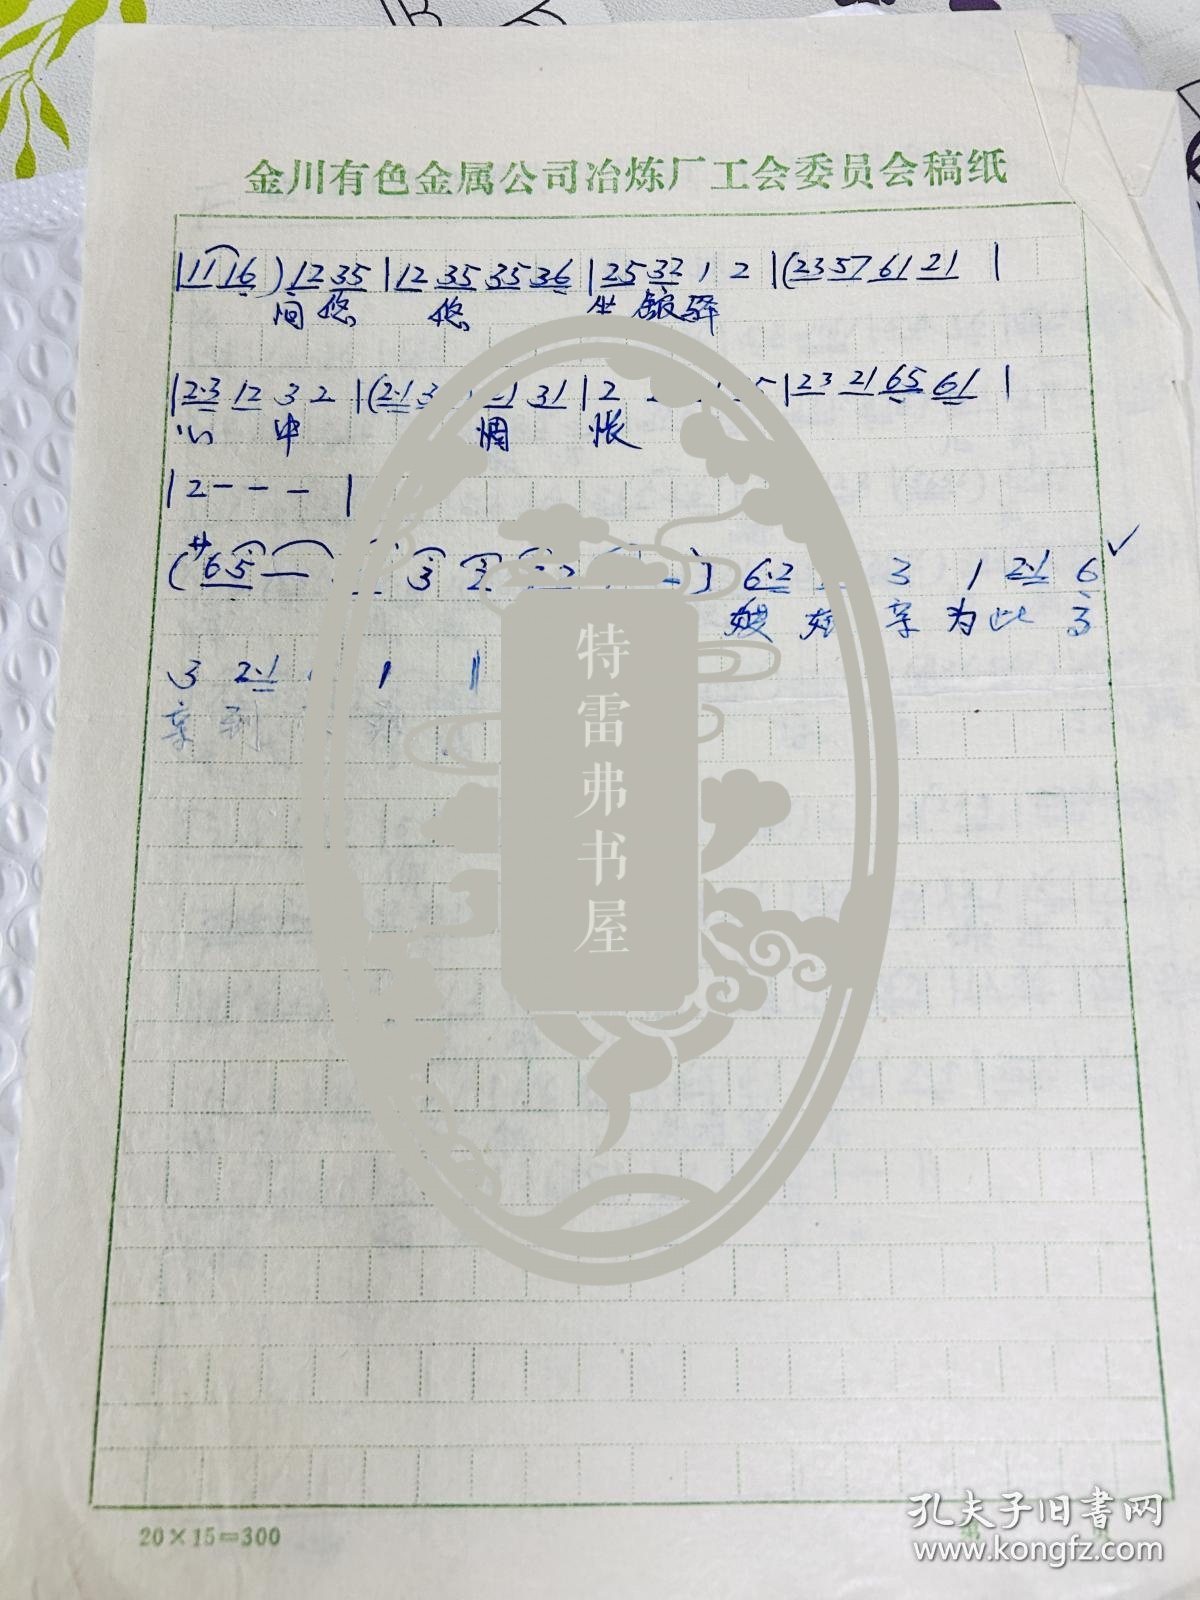 金川有色金属公司冶炼厂工会委员会稿纸
|11 16)12 35|12 35 35 36|25 32 1 2|(23 57 61 21|
间悠 悠 坐 馆驿
|2·3 12 3 2|(2·1 3 1 31|2 5|23 21 65 61|
心 中 惆 怅
|2 - - - |
(サ65 — 3 2 2 -) 6·2 3 1 2·1 6 ✓
嫂 嫂 辛 为此
3 2·1 1 ‖
辛 到
特雷弗书屋
20×15=300
第 页
孔夫子旧书网
www.kongfz.com